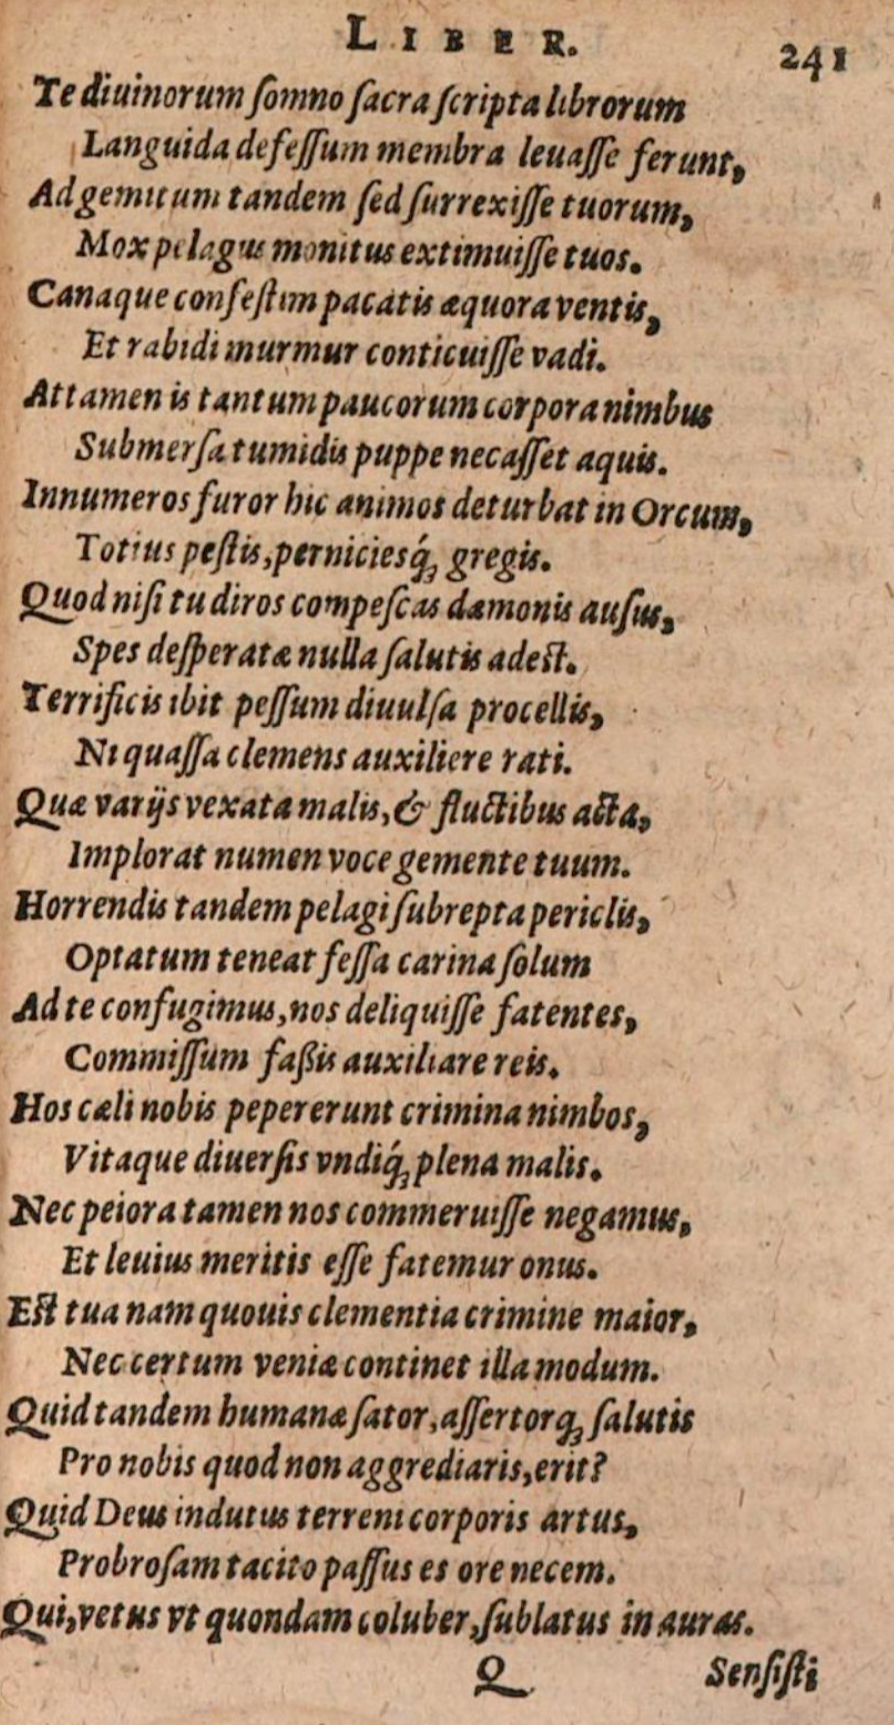 LIBER. 241
Te diuinorum ſomno ſacra ſcripta librorum
Languida defeſſum membra leuaſſe ferunt,
Ad gemitum tandem ſed ſurrexiſſe tuorum,
Mox pelagus monitus extimuiſſe tuos.
Canaque confeſtim pacatis æquora ventis,
Et rabidi murmur conticuiſſe vadi.
Attamen is tantum paucorum corpora nimbus
Submerſa tumidis puppe necaſſet aquis.
Innumeros furor hic animos deturbat in Orcum,
Totius peſtis, perniciesq́; gregis.
Quod niſi tu diros compeſcas dæmonis auſus,
Spes deſperatæ nulla ſalutis adeſt.
Terrificis ibit peſſum diuulſa procellis,
Ni quaſſa clemens auxiliere rati.
Quæ varijs vexata malis, & fluctibus acta,
Implorat numen voce gemente tuum.
Horrendis tandem pelagi ſubrepta periclis,
Optatum teneat feſſa carina ſolum
Ad te confugimus, nos deliquiſſe fatentes,
Commiſſum faßis auxiliare reis.
Hos cæli nobis pepererunt crimina nimbos,
Vitaque diuerſis vndiq́; plena malis.
Nec peiora tamen nos commeruiſſe negamus,
Et leuius meritis eſſe fatemur onus.
Eſt tua nam quouis clementia crimine maior,
Nec certum veniæ continet illa modum.
Quid tandem humanæ ſator, aſſertorq; ſalutis
Pro nobis quod non aggrediaris, erit?
Quid Deus indutus terreni corporis artus,
Probroſam tacito paſſus es ore necem.
Qui, vetus vt quondam coluber, ſublatus in auras.
Q Senſiſti